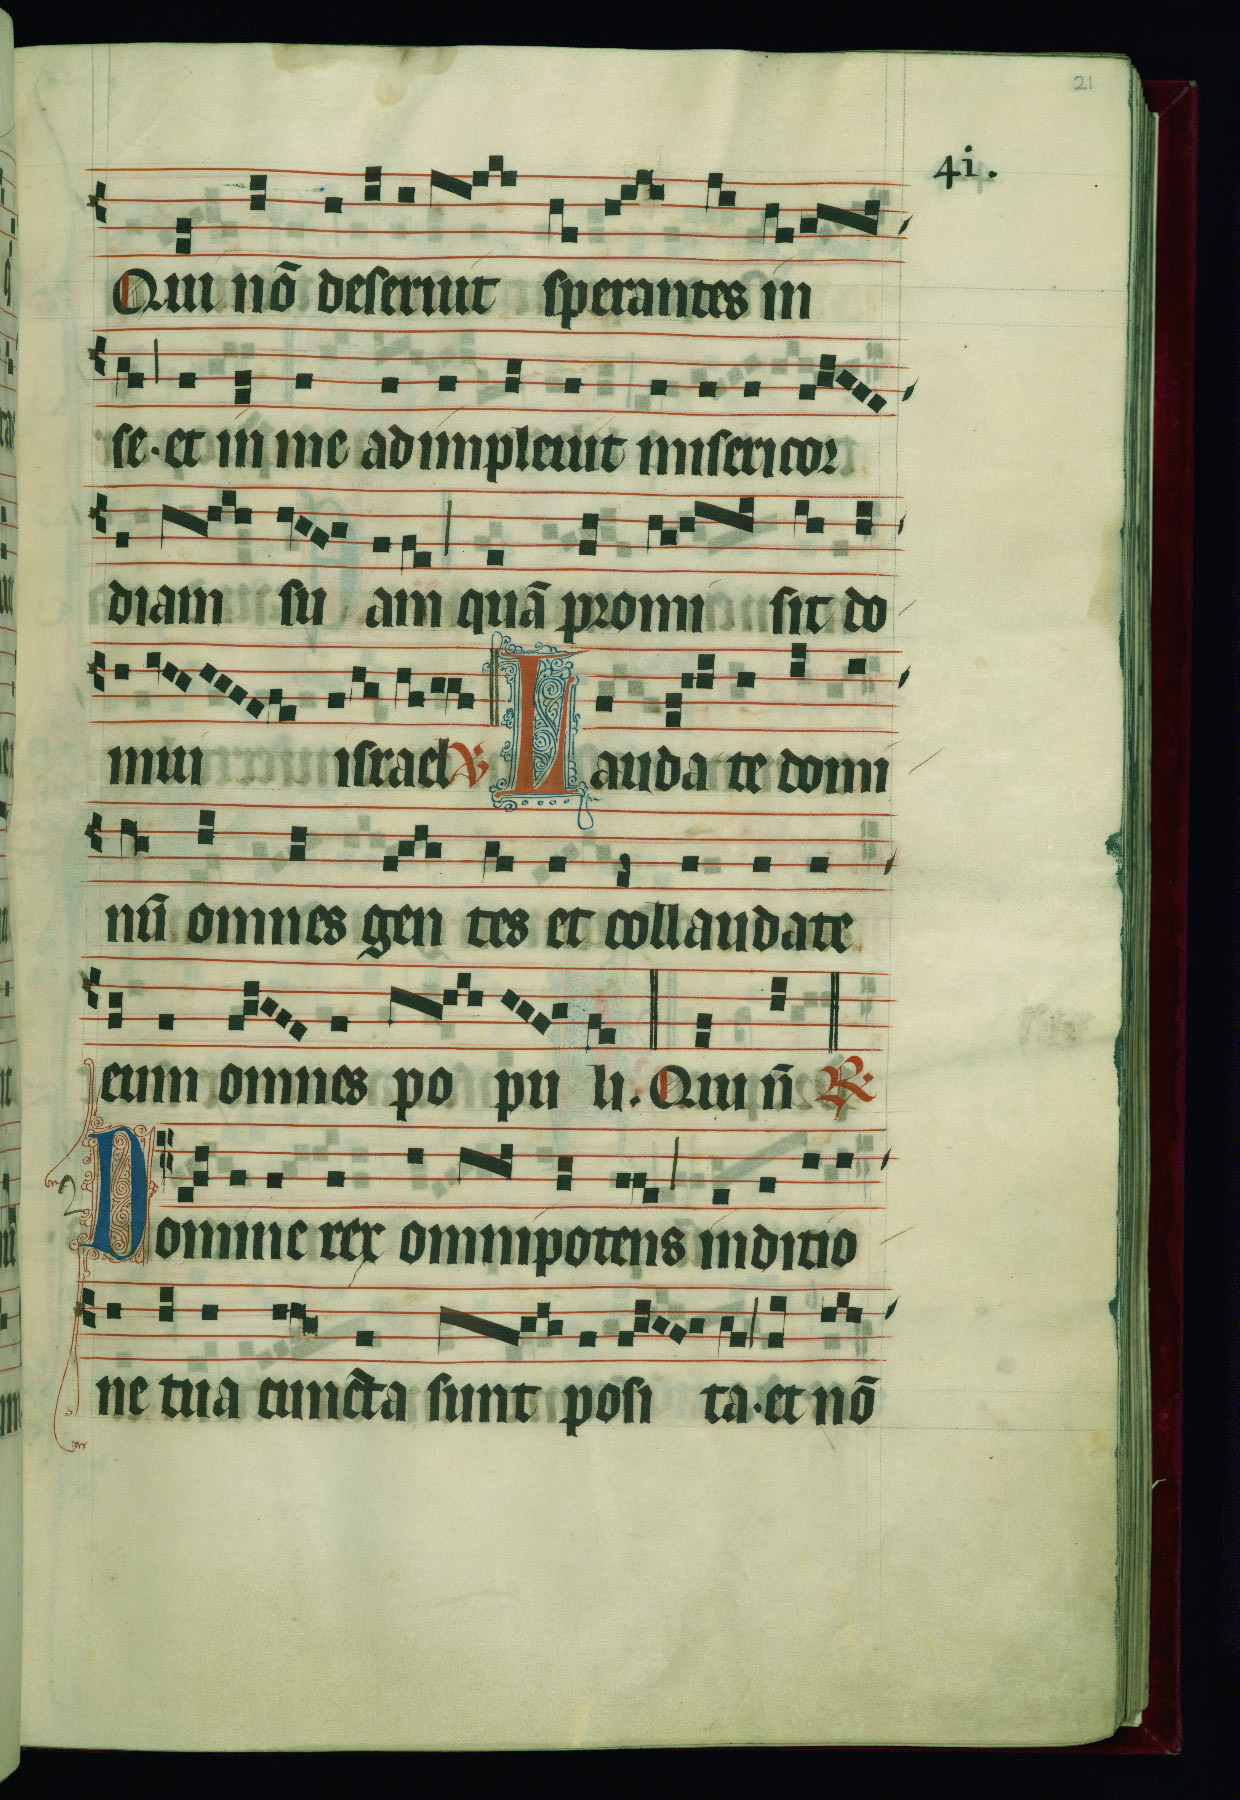 21
4i.
Qui nõ deseruit sperantes in
se. et in me adimpleuit misericor
diam su am quã promi sit do
mui israel ℣ Lauda te domi
nũ omnes gen tes et collaudate
eum omnes po pu li. Qui ñ ℟
Domine rex omnipotens in ditio
ne tua cuncta sunt posi ta. et nõ